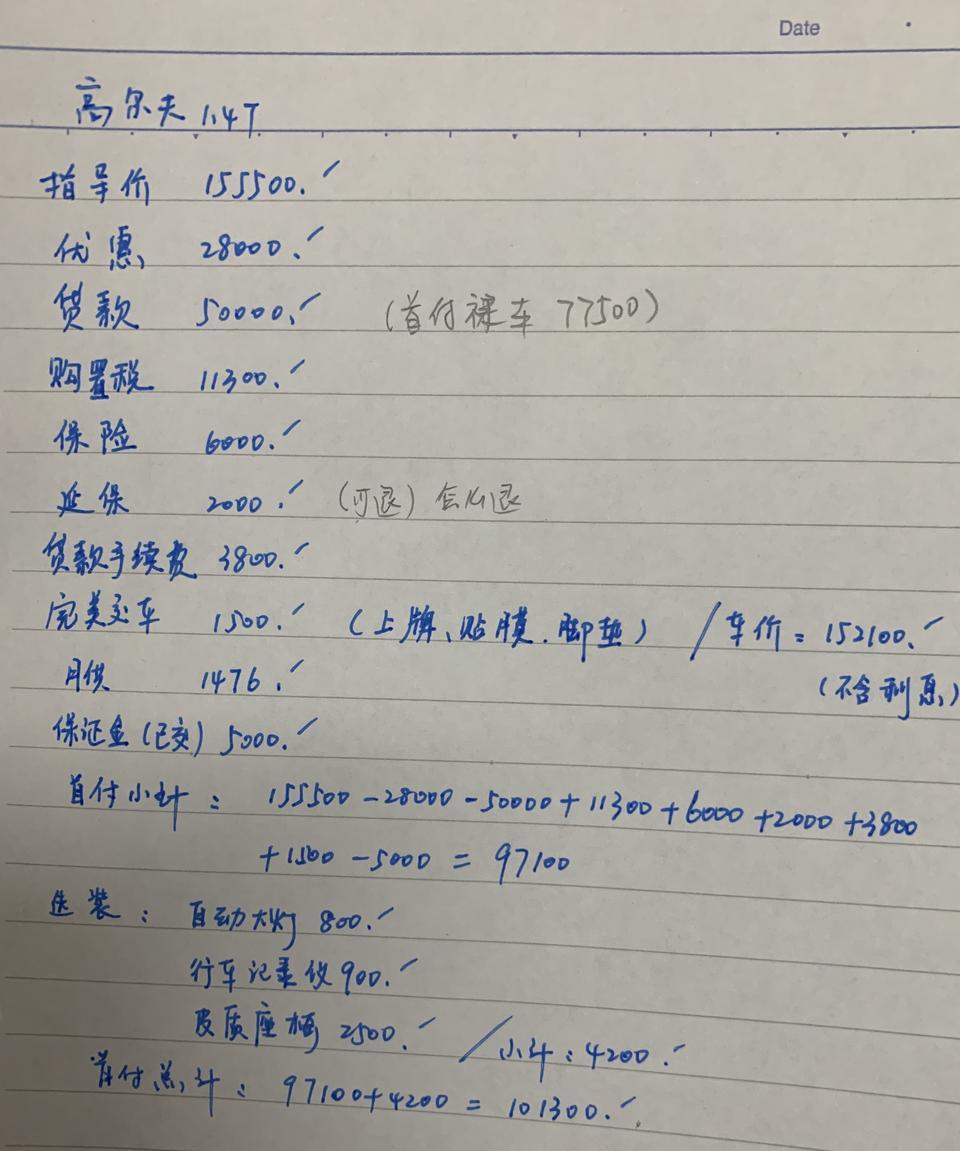 Date
高尔夫 1.4T
指导价 155500.✓
优惠 28000.✓
贷款 50000.✓ (首付裸车 77500)
购置税 11300.✓
保险 6000.✓
延保 2000.✓ (可退) 怎么退
贷款手续费 3800.✓
完美交车 1500.✓ (上牌、贴膜.脚垫) / 车价 = 152100.✓
(不含利息)
月供 1476.✓
保证金(已交) 5000.✓
首付小计: 155500-28000-50000+11300+6000+2000+3800
+1500-5000 = 97100
选装: 自动大灯 800.✓
行车记录仪 900.✓
皮质座椅 2500.✓ / 小计: 4200.✓
首付总计: 97100+4200 = 101300.✓